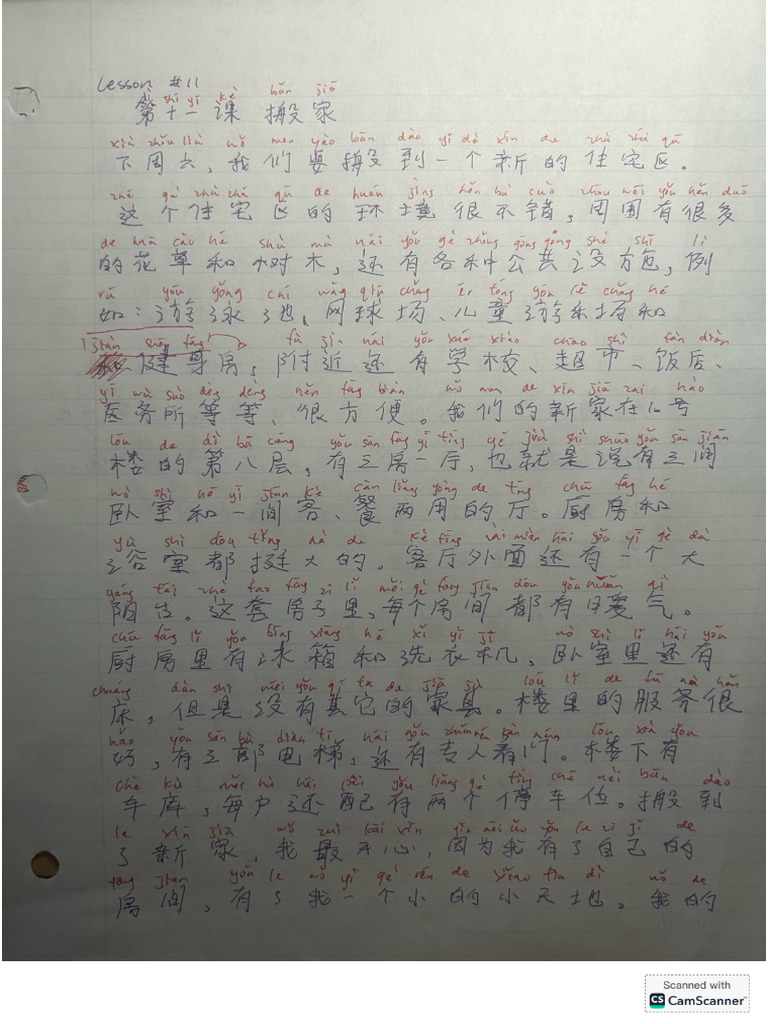 Lesson #11
dì shí yī kè bān jiā
第十一课 搬家
xià zhōu liù wǒ men yào bān dào yī gè xīn de zhù zhái qū
下周六,我们要搬到一个新的住宅区。
zhè gè zhù zhái qū de huán jìng hěn bù cuò zhōu wéi yǒu hěn duō
这个住宅区的环境很不错,周围有很多
de huā cǎo hé shù mù hái yǒu gè zhǒng gōng gòng shè shī lì
的花草和树木,还有各种公共设施,例
rú yóu yǒng chí wǎng qiú chǎng ér tóng yóu lè chǎng hé
如:游泳池、网球场、儿童游乐场和
jiàn shēn fáng fù jìn hái yǒu xué xiào chāo shì fàn diàn
健身房,附近还有学校、超市、饭店、
yī wù suǒ děng děng hěn fāng biàn wǒ men de xīn jiā zai hào
医务所等等、很方便。我们的新家在10号
lóu de dì bā céng yǒu sān fáng yī tīng yě jiù shì shuō yǒu sān jiān
楼的第八层,有三房一厅,也就是说有三间
wò shì hé yī jiān kè cān liǎng yòng de tīng chú fáng hé
卧室和一间客、餐两用的厅。厨房和
yù shì dōu tǐng dà de kè tīng wài miàn hái yǒu yī gè dà
浴室都挺大的。客厅外面还有一个大
yáng tái zhè tào fáng zi lǐ měi gè fáng jiān dōu yǒu nuǎn qì
阳台。这套房子里,每个房间都有暖气。
chú fáng lǐ yǒu bīng xiāng hé xǐ yī jī wò shì lǐ hái yǒu
厨房里有冰箱和洗衣机,卧室里还有
chuáng dàn shì méi yǒu qí tā de jiā jù lóu lǐ de fú wù hěn
床,但是没有其它的家具。楼里的服务很
hǎo yǒu sān bù diàn tī hái yǒu zhuān rén kān mén lóu xià yǒu
好,有三部电梯,还有专人看门。楼下有
chē kù měi hù hái pèi yǒu liǎng gè tíng chē wèi bān dào
车库,每户还配有两个停车位。搬到
le xīn jiā wǒ zuì kāi xīn yīn wèi wǒ yǒu le zì jǐ de
了新家,我最开心,因为我有了自己的
fáng jiān yǒu le wǒ yī gè rén de xiǎo tiān dì wǒ de
房间,有了我一个小的小天地。我的
Scanned with
CS CamScanner